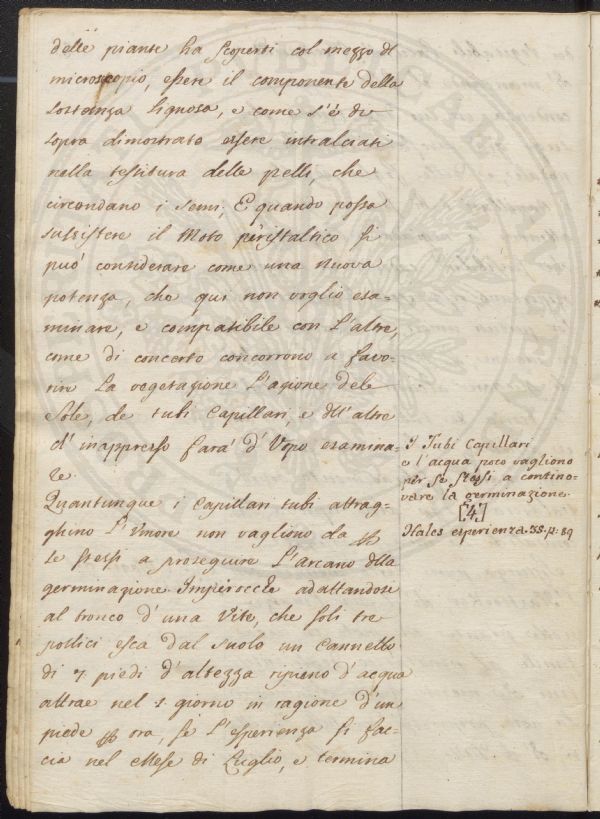 delle piante ha scoperti col mezzo del
microscopio, essere il componente della
sostanza lignosa, e come s'è di
sopra dimostrato essere intralciati
nella tessitura delle pelli, che
circondano i semi, E quando possa
sussistere il Moto peristaltico si
può considerare come una nuova
potenza, che qui non voglio esa-
minare, e compatibile con l'altre,
come di concerto concorrono a favo-
rire la vegetazione l'azione del
Sole, de tubi Capillari, e dell'altre
ch'inappresso farà d'Vopo esamina-
re.
Quantunque i Capillari tubi attrag-
ghino l'Vmore non vagliono da per
se stessi a proseguire l'Arcano della
germinazione. Impierocchè adattandosi
al tronco d'una Vite, che soli tre
pollici esca dal suolo un Cannello
di 7. piedi d'altezza ripieno d'acqua
attrae nel 1. giorno in ragione d'un
piede per ora, se l'esperienza si fac-
cia nel Mese di Luglio, e termina
I Tubi Capillari
e l'acqua poco vagliono
per se stessi a contino-
vare la germinazione.
[4]
Hales esperienza. 38. p: 89